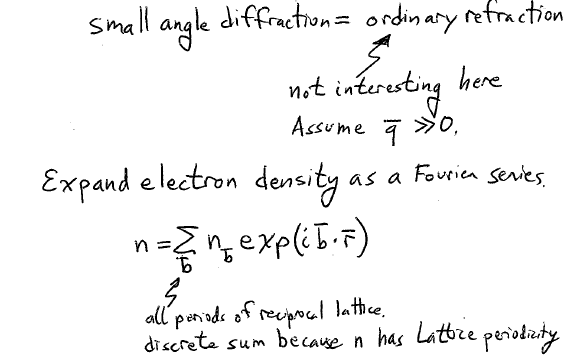 small angle diffraction = ordinary refraction
not interesting here
Assume q̄ ≫ 0.
Expand electron density as a Fourier series.
n = ∑_b̄ n_b̄ exp(i b̄·r̄)
all periods of reciprocal lattice.
discrete sum because n has Lattice periodicity